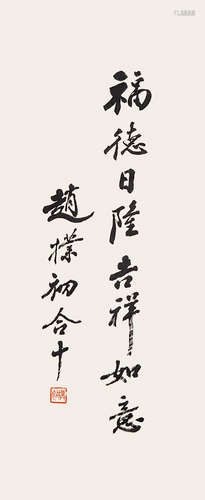 福德日隆吉祥如意
趙樸初合十